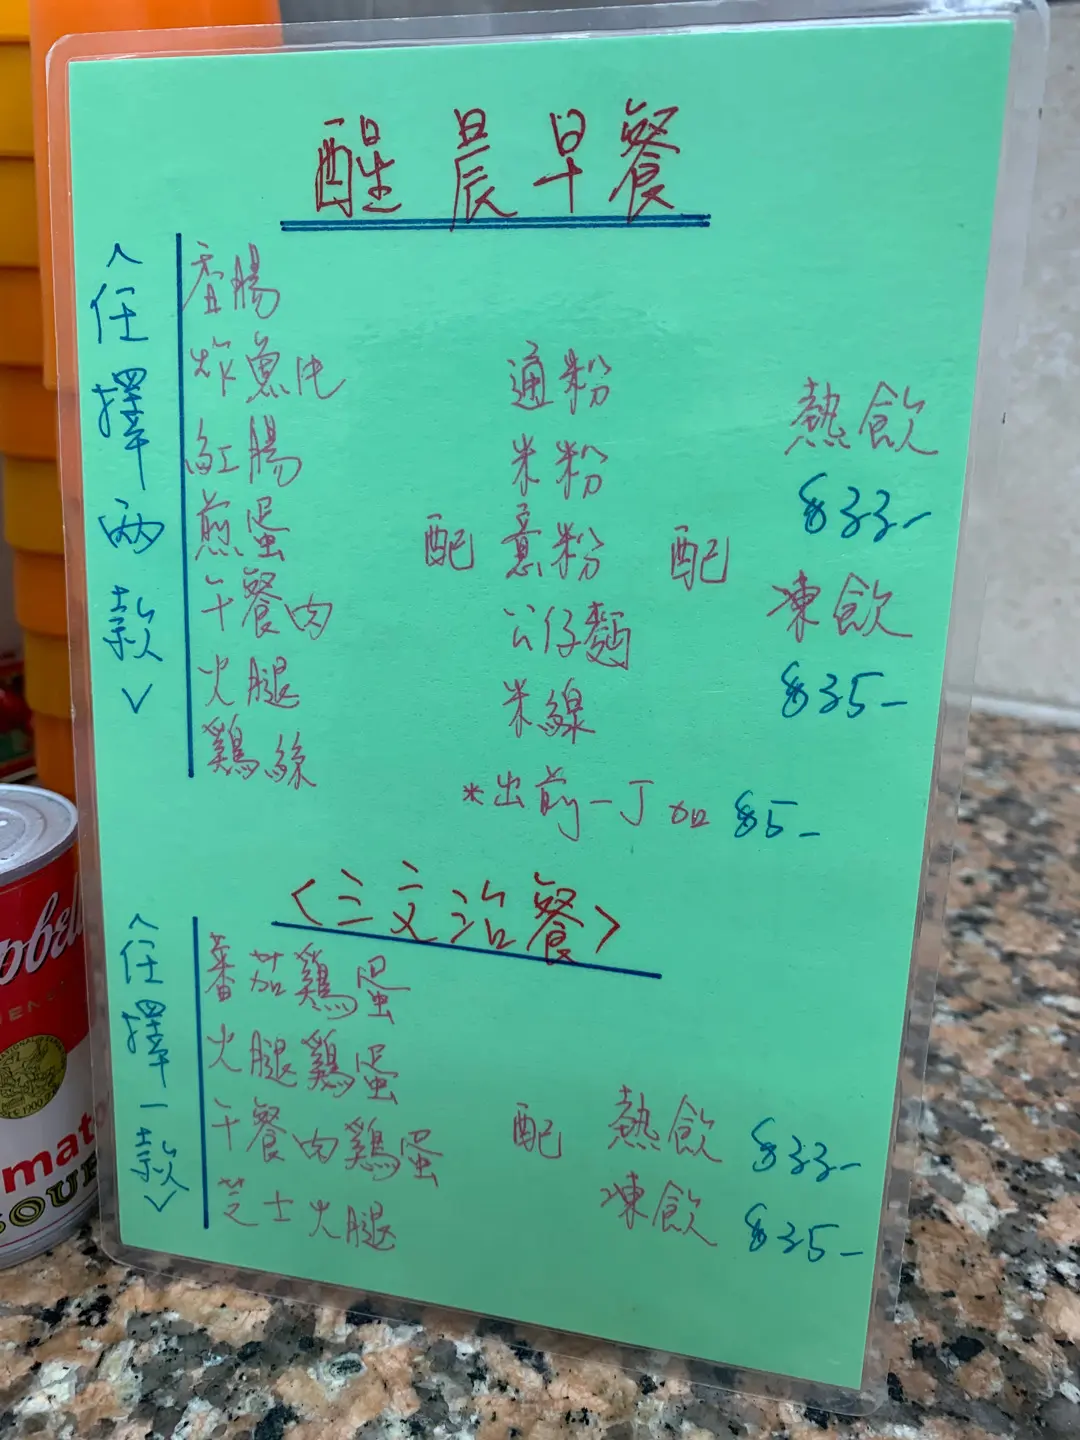 醒晨早餐
<任擇兩款>
香腸
炸魚片
紅腸
煎蛋
午餐肉
火腿
鷄絲
配
通粉
米粉
意粉
公仔麵
米線
配
熱飲
$33-
凍飲
$35-
*出前一丁加 $5-
<三文治餐>
<任擇一款>
蕃茄鷄蛋
火腿鷄蛋
午餐肉鷄蛋
芝士火腿
配
熱飲 $33-
凍飲 $35-